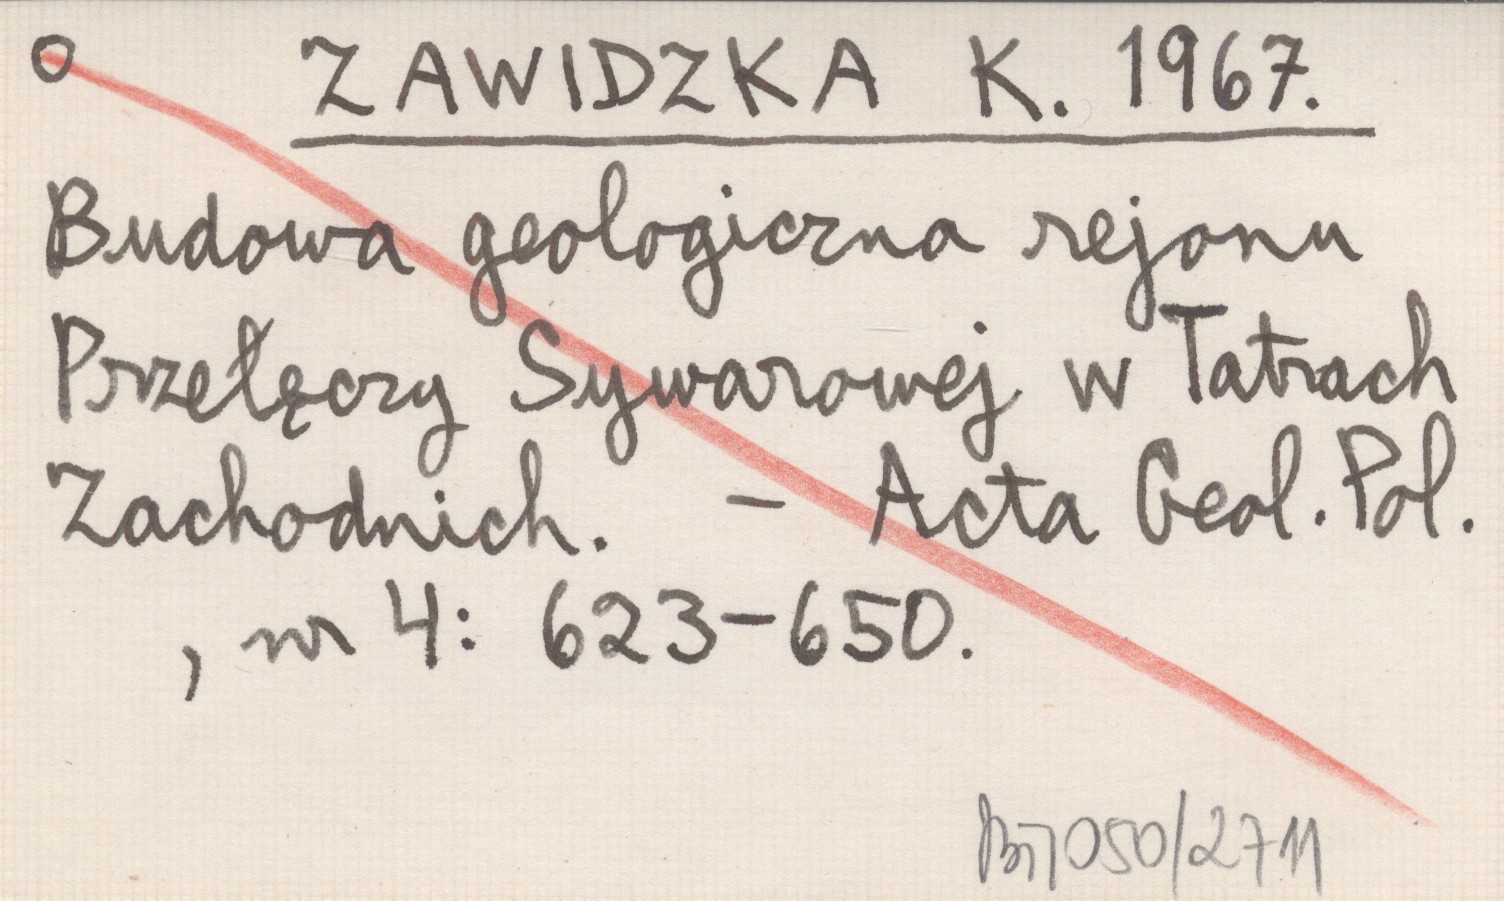 O ZAWIDZKA K. 1967.
Budowa geologiczna rejonu
Przełęczy Sywarowej w Tatrach
Zachodnich. – Acta Geol. Pol.
, nr 4: 623–650.
050/2711